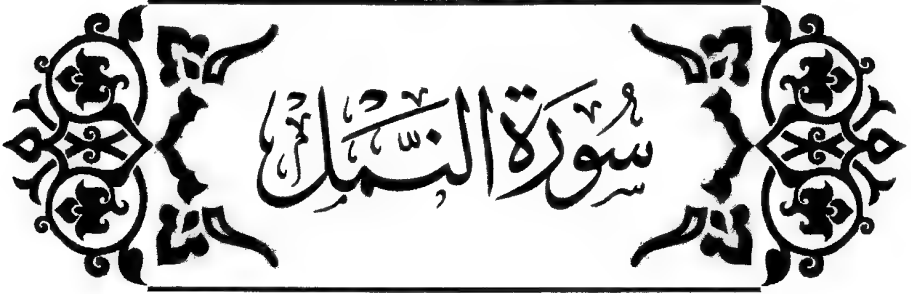 سُورَة النَّمل